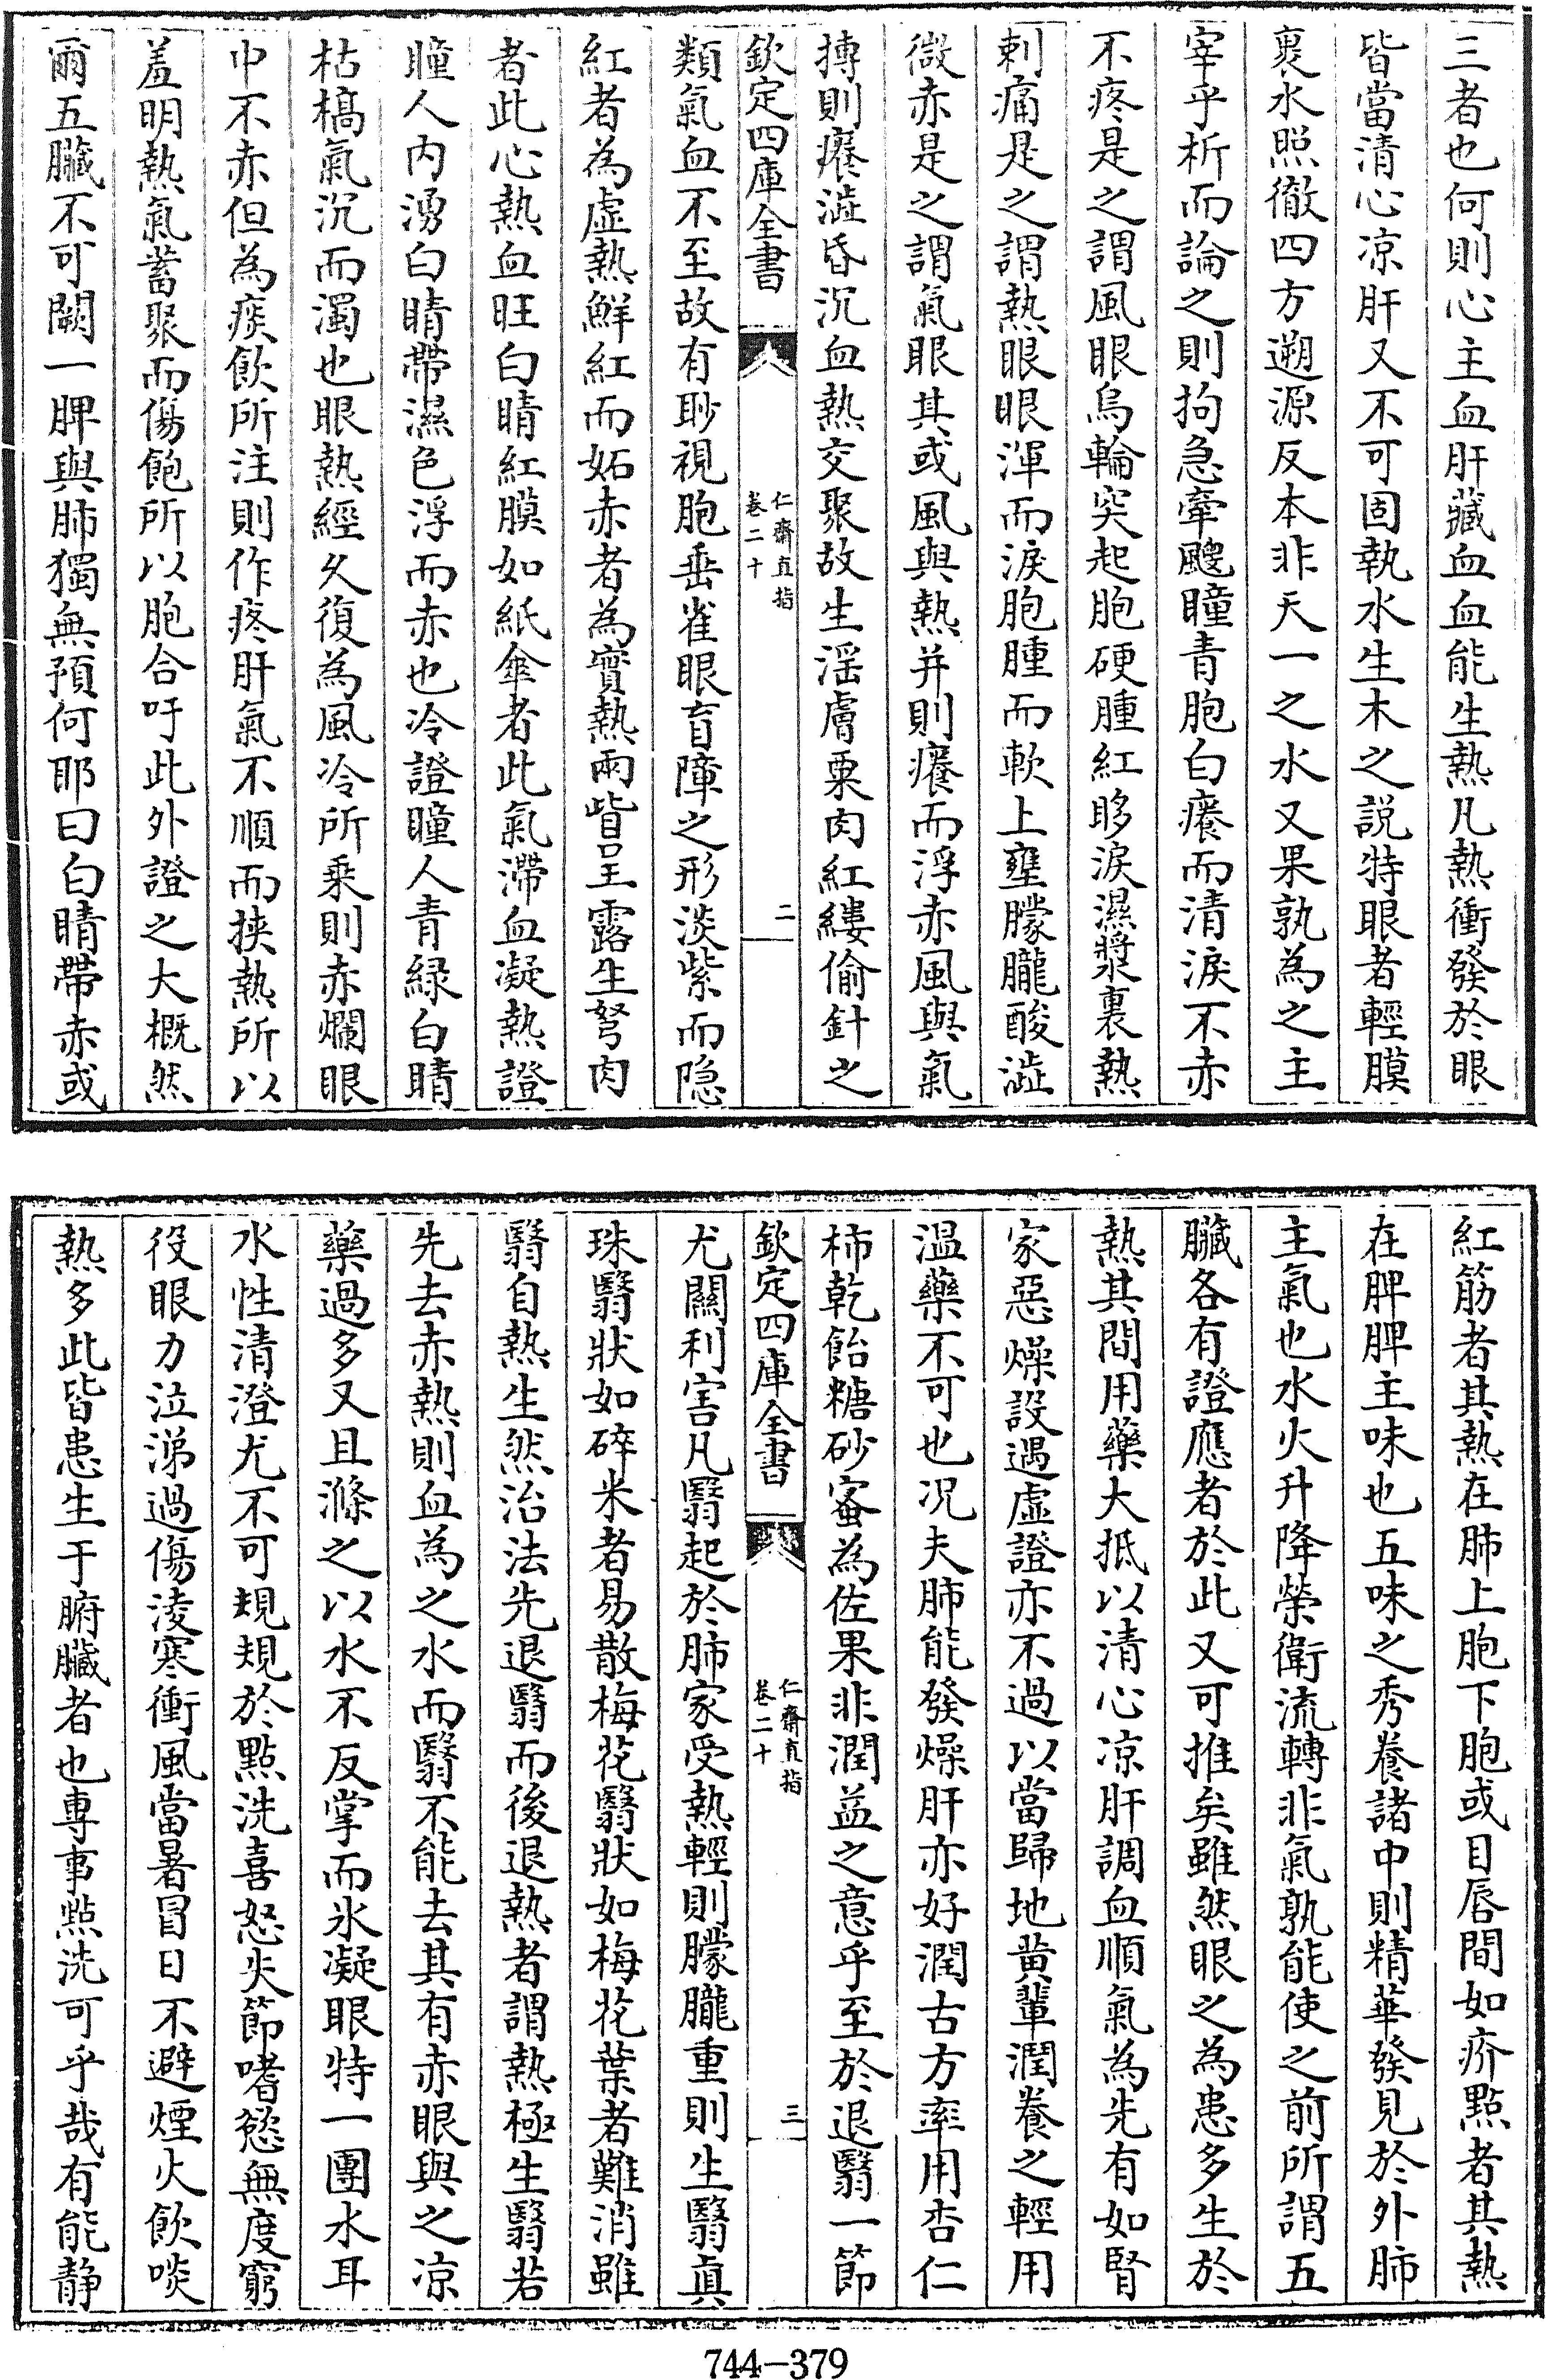 三者也何則心主血肝藏血血能生熱凡熱衝發於眼
皆當清心凉肝又不可固執水生木之説特眼者輕膜
裹水照徹四方遡源反本非天一之水又果孰為之主
宰乎析而論之則拘急牽飈瞳青胞白癢而清淚不赤
不疼是之謂風眼烏輪突起胞硬腫紅眵淚濕漿裏熱
刺痛是之謂熱眼眼渾而淚胞腫而軟上壅朦朧酸澁
微赤是之謂氣眼其或風與熱并則癢而浮赤風與氣
搏則癢澁昏沉血熱交聚故生滛膚粟肉紅縷偷針之
欽定四庫全書
仁齋直指
卷二十
二
類氣血不至故有眇視胞垂雀眼盲障之形淡紫而隐
紅者為虛熱鮮紅而妬赤者為實熱兩眥呈露生弩肉
者此心熱血旺白睛紅膜如紙傘者此氣滯血凝熱證
瞳人内湧白睛帶濕色浮而赤也冷證瞳人青緑白睛
枯槁氣沉而濁也眼熱經久復為風冷所乗則赤爛眼
中不赤但為痰飲所注則作疼肝氣不順而挟熱所以
羞明熱氣蓄聚而傷飽所以胞合吁此外證之大概然
爾五臟不可闕一脾與肺獨無預何耶曰白睛帶赤或
紅筋者其熱在肺上胞下胞或目唇間如疥點者其熱
在脾脾主味也五味之秀養諸中則精華發見於外肺
主氣也水火升降榮衛流轉非氣孰能使之前所謂五
臟各有證應者於此又可推矣雖然眼之為患多生於
熱其間用藥大抵以清心凉肝調血順氣為先有如腎
家惡燥設遇虛證亦不過以當歸地黄輩潤養之輕用
温藥不可也况夫肺能發燥肝亦好潤古方率用杏仁
柿乾飴糖砂蜜為佐果非潤益之意乎至於退翳一節
欽定四庫全書
仁齋直指
卷二十
三
尤關利害凡翳起於肺家受熱輕則朦朧重則生翳真
珠翳狀如碎米者易散梅花翳狀如梅花葉者難消雖
翳自熱生然治法先退翳而後退熱者謂熱極生翳若
先去赤熱則血為之水而翳不能去其有赤眼與之凉
藥過多又且滌之以水不反掌而氷凝眼特一團水耳
水性清澄尤不可規規於點洗喜怒失節嗜慾無度窮
役眼力泣涕過傷凌寒衝風當暑冒日不避煙火飲啖
熱多此皆患生于腑臟者也専事㸃洗可乎哉有能静
744-379